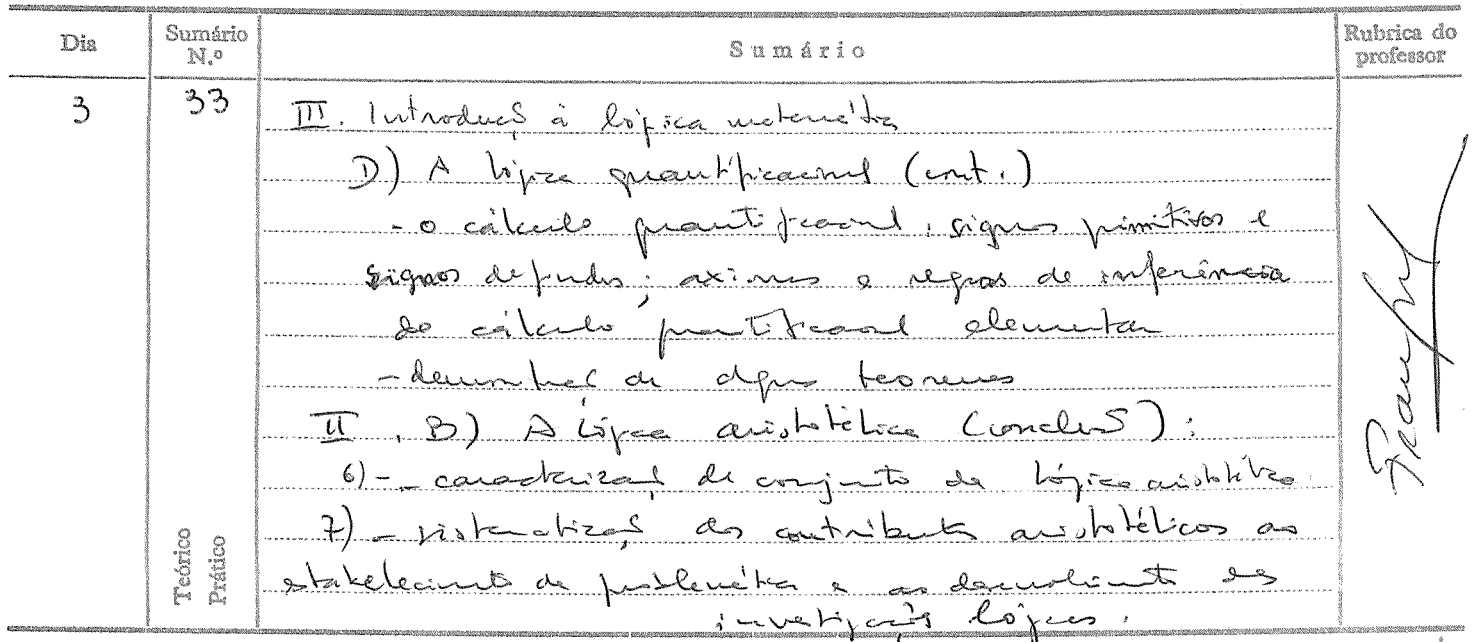 Dia
Sumário N.º
Sumário
Rubrica do professor
3
33
III. Introdução à lógica matemática
D) A lógica quantificacional (cont.)
- o cálculo quantificacional: signos primitivos e
signos definidos; axiomas e regras de inferência
do cálculo quantificacional elementar
- demonstração de alguns teoremas
II. B) A Lógica aristotélica (conclusão):
6) - caracterização de conjunto da lógica aristotélica.
7) - sistematização dos contributos aristotélicos ao
estabelecimento da problemática e ao desenvolvimento das
investigações lógicas.
Teórico
Prático